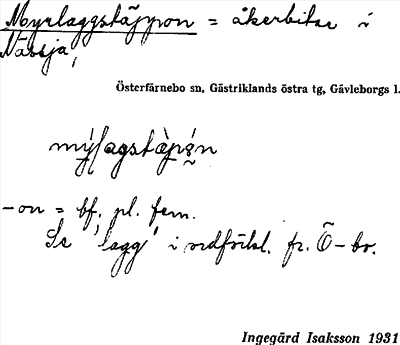 Myrlaggstäppon = åkerbitar i
Nässja,
Österfärnebo sn, Gästriklands östra tg, Gävleborgs l.
-on = bf. pl. fem.
Se 'lagg' i ordförtekn. fr. Ö-bo.
Ingegärd Isaksson 1931